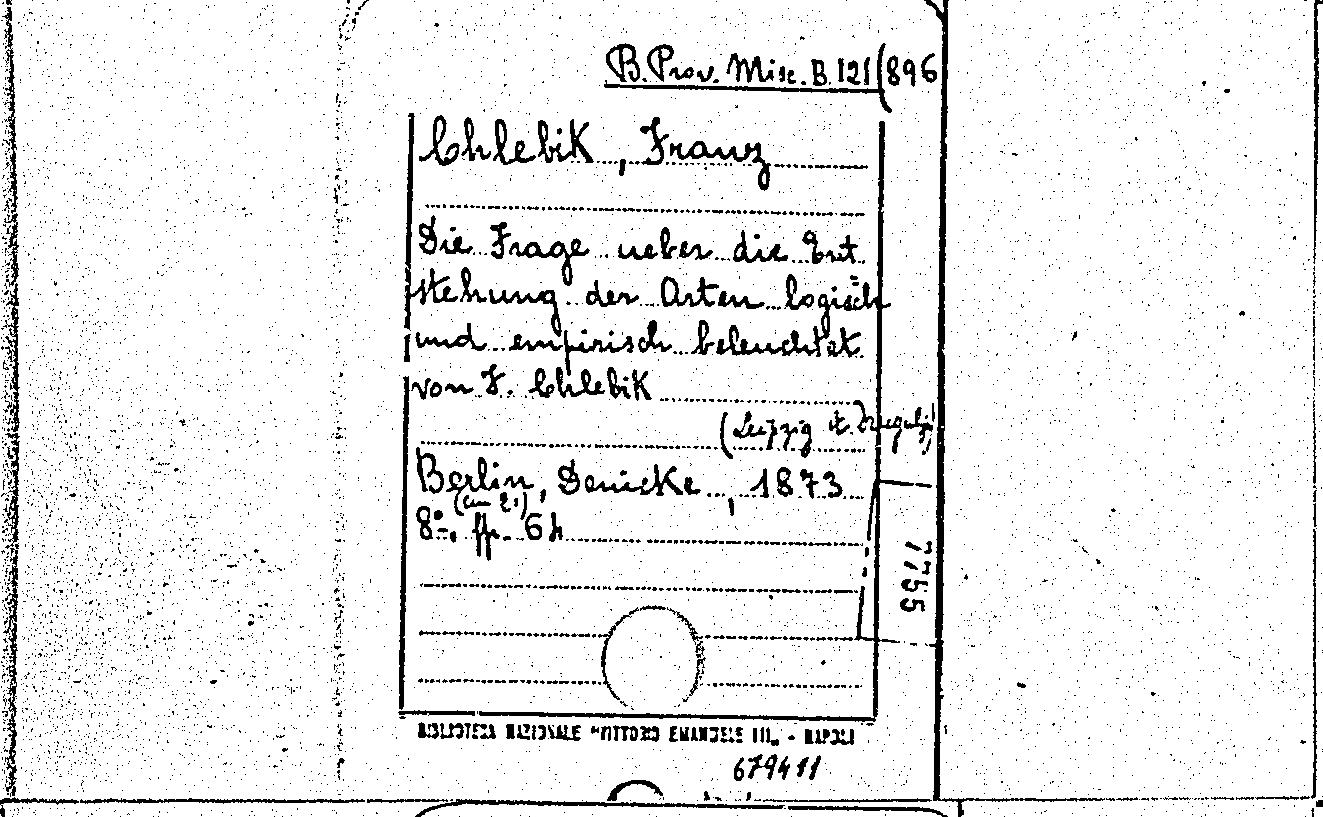 B. Prov. Misc. B. 121 (896
Chlebik, Franz
Die Frage ueber die Ent
stehung der Arten logisch
und empirisch beleuchtet
von F. Chlebik
(Leipzig
Berlin, Denicke, 1873
8º. pp. 64
7755
BIBLIOTECA NAZIONALE "VITTORIO EMANUELE III„ - NAPOLI
679411